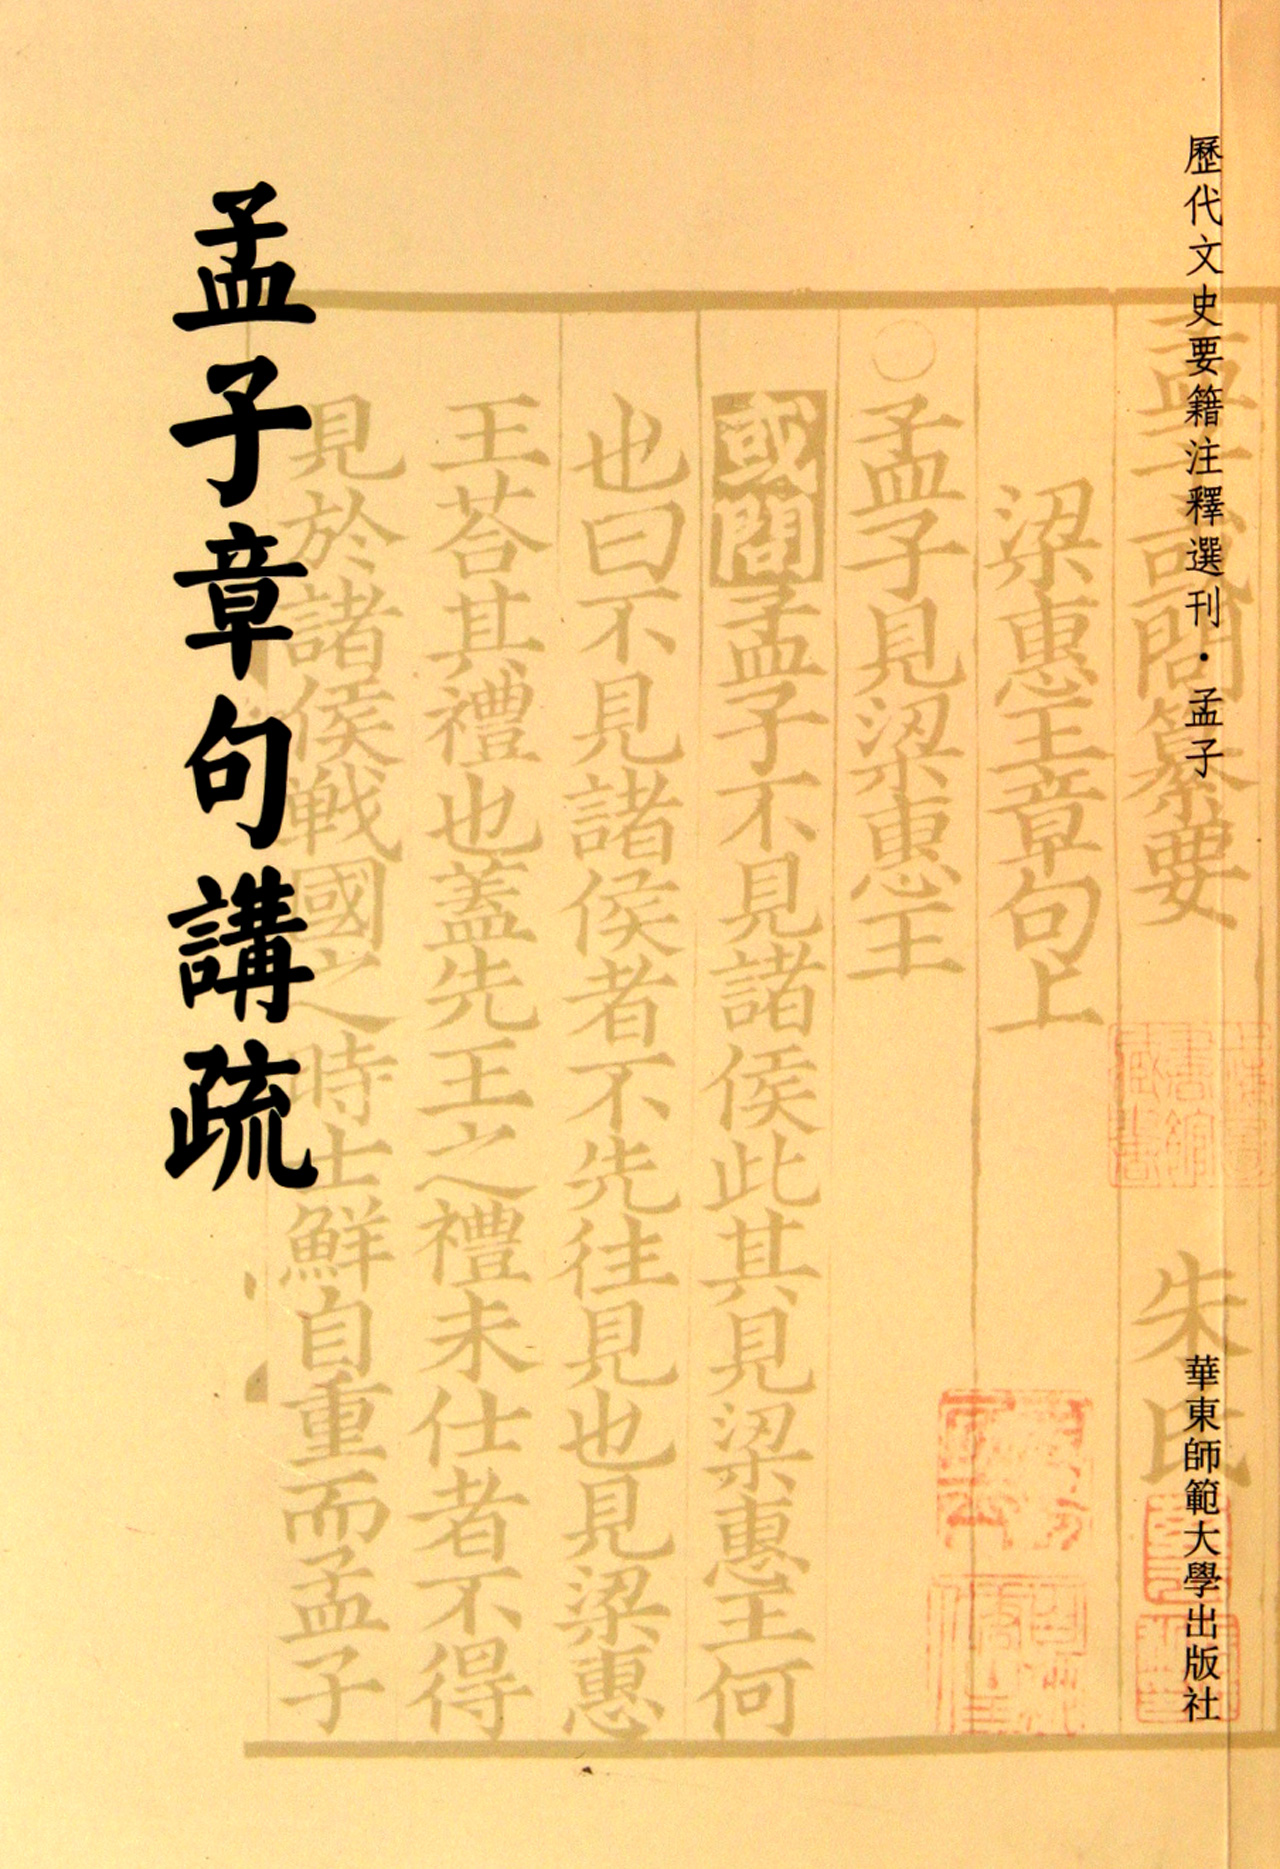 歷代文史要籍注釋選刊·孟子
華東師範大學出版社
孟子章句講疏
孟子或問纂要
朱氏
梁惠王章句上
○孟子見梁惠王
或問孟子不見諸侯此其見梁惠王何
也曰不見諸侯者不先往見也見梁惠
王荅其禮也蓋先王之禮未仕者不得
見於諸侯戰國之時士鮮自重而孟子